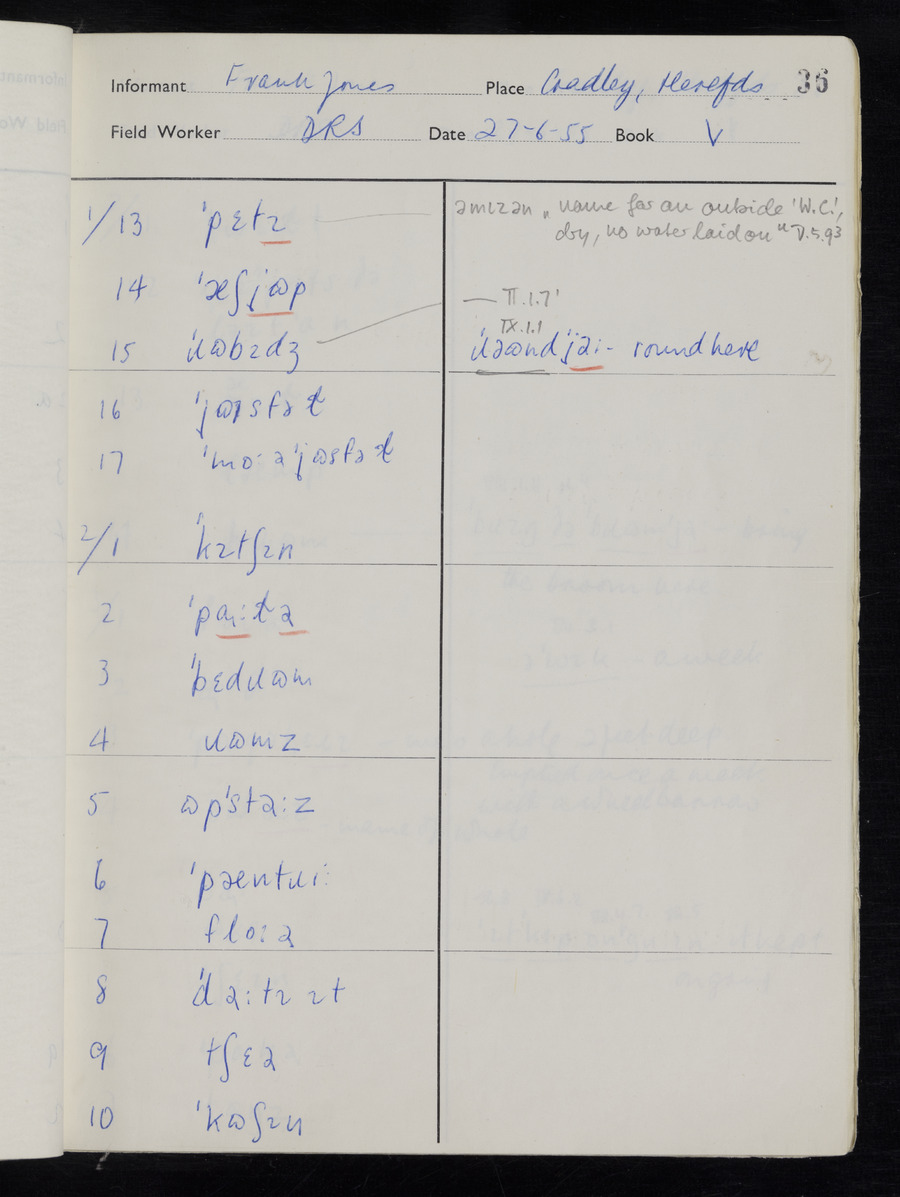 Informant Frank Jones Place Cradley, Herefds 36
Field Worker DRS Date 27-6-55 Book V
1/13 ˈpɛtɪ
əmɪzən „ name for an outside 'W.C.',
dry, no water laid on " V.5.93
14 ˈæʃjɷp
— II.1.7'
IX.1.1
15 ˈɹɷbɪdʒ
ˈɹəɷndˈjəː- round here
16
17
2/1 ˈkɪtʃɪn
2
3 ˈbɛdɹɷm
4 ɹɷmz
5 ɷpˈstəːz
6 ˈpæntɹiː
7 floːə
8 ˈdəːtɪ ɪt
9 tʃɛə
10 ˈkɷʃɪn